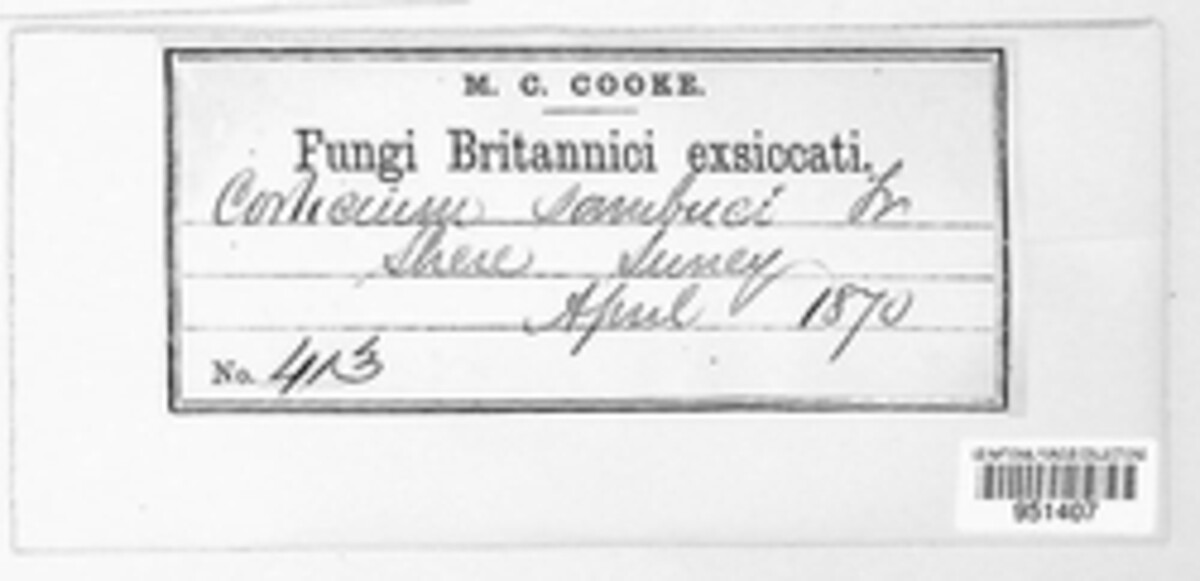 M. C. COOKE.
Fungi Britannici exsiccati.
Corticium sambuci Fr
Shere Surrey
April 1870
No. 413
951407